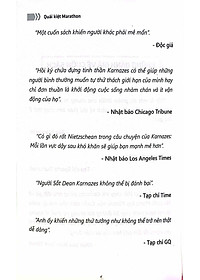 Quái kiệt Marathon
"Một cuốn sách khiến người khác phải mê mẩn".
- Độc giả
"Hồi ký chưa đựng tinh thần Karnazes có thể giúp những
người bình thường muốn tự thử thách giới hạn của mình hay
chỉ đơn thuần là khởi động cuộc sống nhàm chán và ít vận
động của họ".
- Nhật báo Chicago Tribune
"Có gì đó rất Nietzschean trong câu chuyện của Karnazes:
Mỗi lần vực dậy sau khó khăn sẽ giúp bạn mạnh mẽ hơn".
- Nhật báo Los Angeles Times
"Người Sắt Dean Karnazes không thể bị đánh bại".
- Tạp chí Time
"Anh ấy khiến những thứ tưởng như không thể trở nên thật
dễ dàng".
- Tạp chí GQ